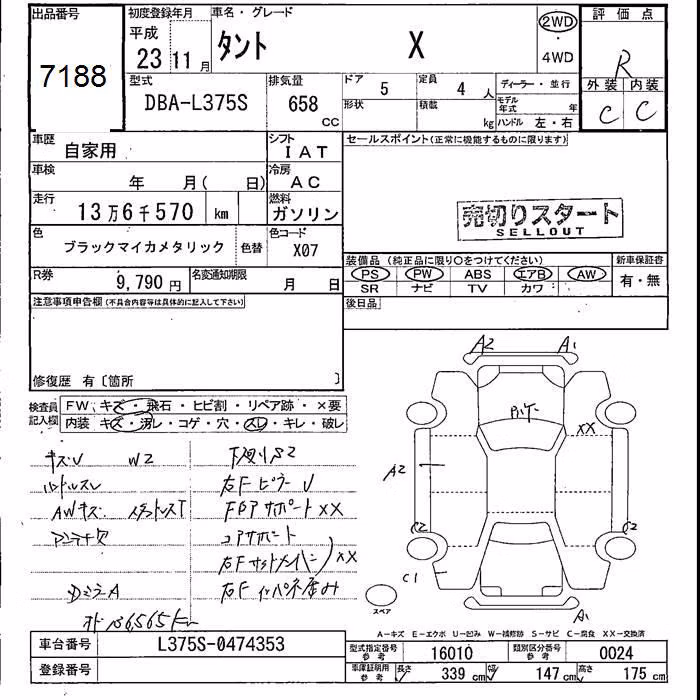 出品番号
7188
初度登録年月
平成
23 11 月
車名・グレード
タント X
2WD
4WD
評価点
R
外装 内装
C C
型式
DBA-L375S
排気量
658 cc
ドア 5
定員 4 人
形状
積載 kg
ディーラー・並行
モデル年式 年
ハンドル 左・右
車歴 自家用
シフト IAT
車検 年 月( 日)
冷房 AC
走行 13万6千570 km
燃料 ガソリン
色 ブラックマイカメタリック 色替
色コード X07
R券 9,790 円
名変通知期限 月 日
セールスポイント(正常に機能するものに限ります)
売切りスタート
SELLOUT
装備品(純正品に限り○をつけてください)
新車保証書
PS PW ABS エアB AW
SR ナビ TV カワ
有・無
後日品
注意事項申告欄(不具合内容等は具体的に記入して下さい)
修復歴 有〔箇所 〕
検査員記入欄
FW キズ・飛石・ヒビ割・リペア跡・×要
内装 キズ・汚レ・コゲ・穴・スレ・キレ・破レ
キズU W2
ハンドルスレ
AWキズ
アンテナ欠
右Fピラー U
コアサポート
XX
A2 A1
XX
A2
C2 C2
C1
A1
スペア
A-キズ E-エクボ U-凹み W-補修跡 S-サビ C-腐食 XX-交換済
車台番号 L375S-0474353
登録番号
型式指定番号 参考 16010
類別区分番号 参考 0024
車庫証明用 参考
長さ 339 cm
幅 147 cm
高さ 175 cm